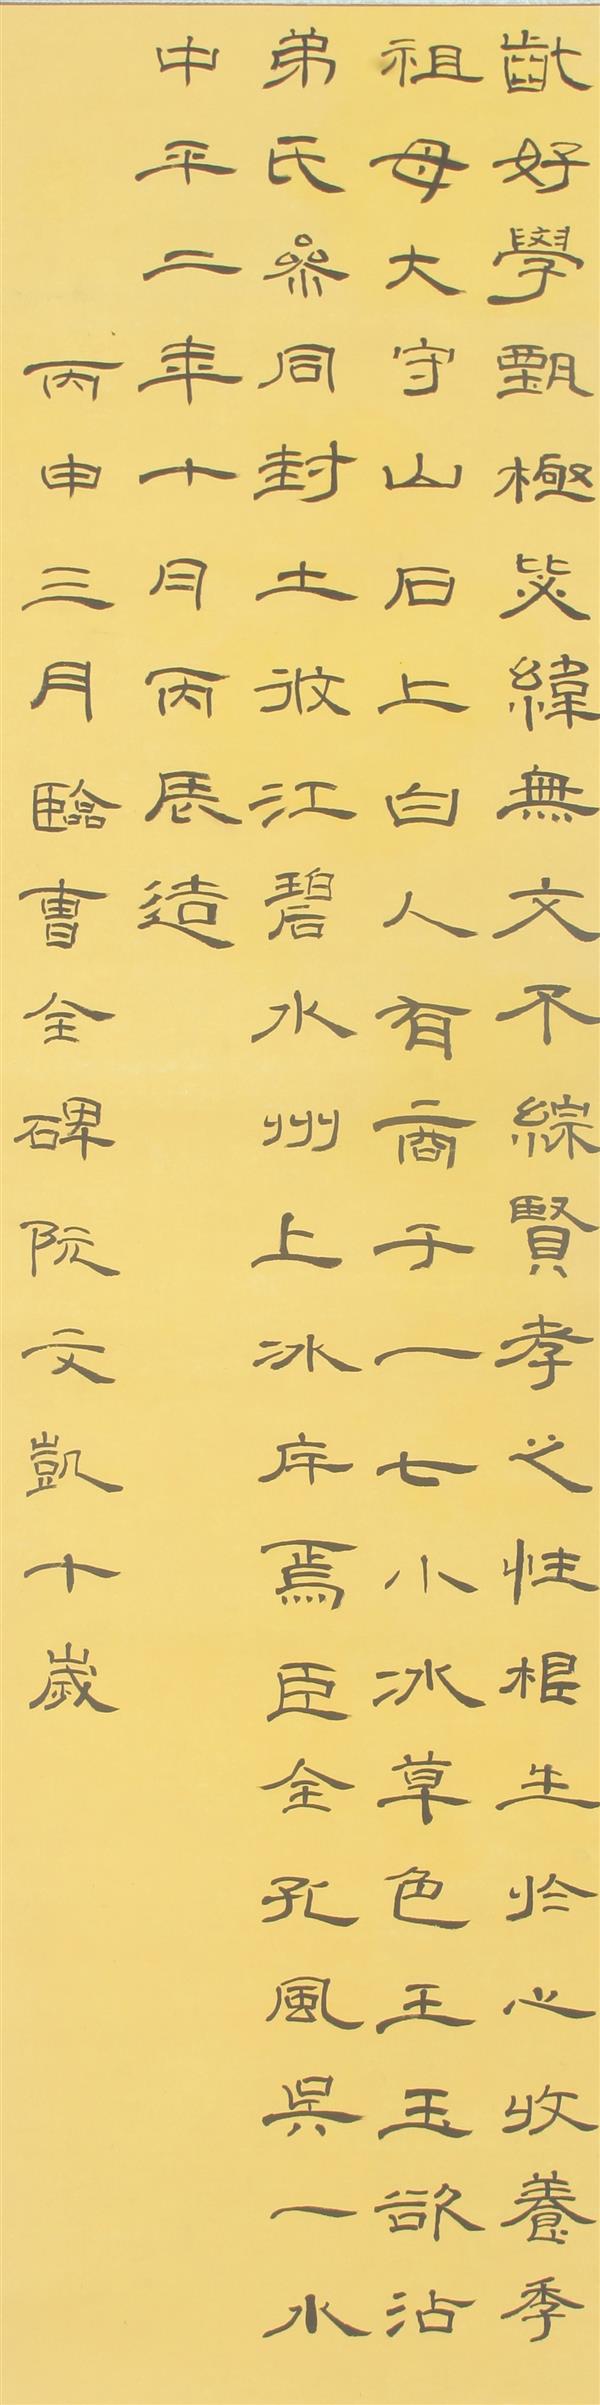 齔好學甄極毖緯無文不綜賢孝之性根生於心收養季
祖母大守山石上白人有商于一七小冰草色王玉欲沾
弟氏叅同封土攸江碧水州上冰序焉臣全孔風吳一水
中平二年十月丙辰造
丙申三月臨曹全碑阮文凱十歲